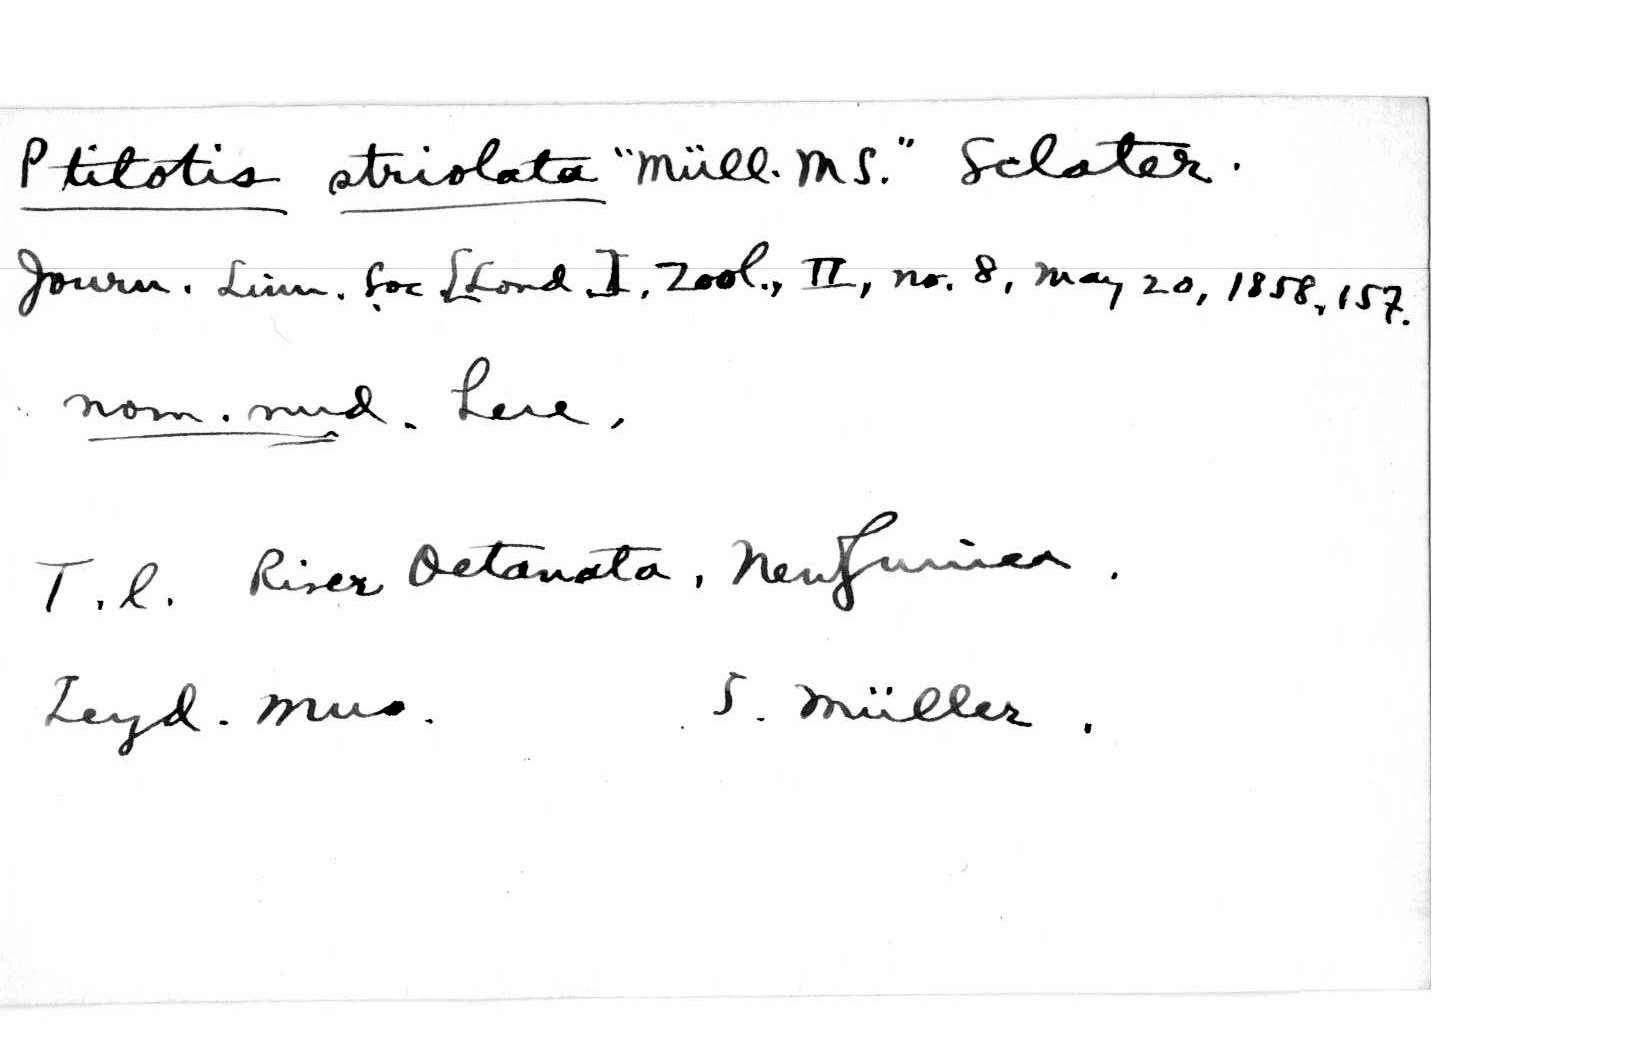 Ptilotis striolata "Müll. MS." Sclater.
Journ. Linn. Soc. [Lond.], Zool., II, no. 8, May 20, 1858, 157.
nom. nud. here,
T.l. River Oetanata, New Guinea.
Leyd. Mus. S. Müller.